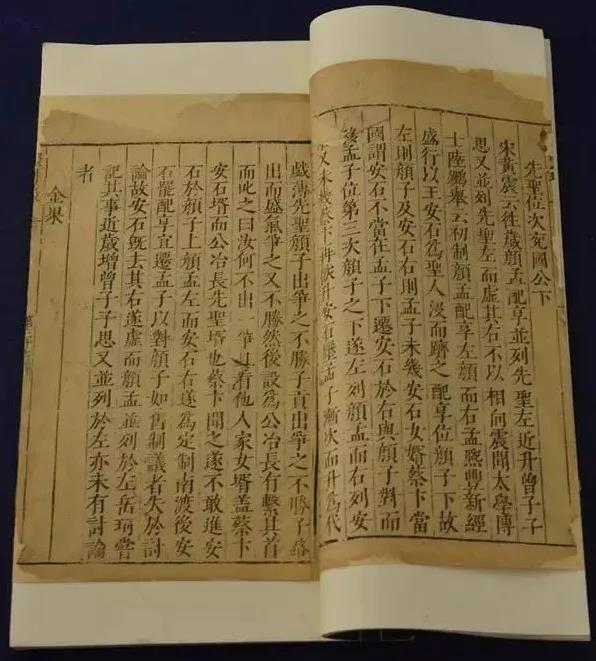 先聖位次兗國公下
宋黃震云徃歲顏孟配享並列先聖左近升曾子子
思又並列先聖左而虛其右不以相向震聞太學博
士陸鵬舉云初制顏孟配享左顏而右孟熙豐新經
盛行以王安石爲聖人沒而躋之配享位顏子下故
左則顏子及安石右則孟子未幾安石女婿蔡卞當
國謂安石不當在孟子下遷安石於右與顏子對而
移孟子位第三次顏子之下遂左列顏孟而右列安
又未幾蔡卞再欲升安石壓孟子漸次而升爲代
戲薄先聖顏子出爭之不勝子貢出爭之不勝子路
出而盛氣爭之又不勝然後設爲公冶長有繫其首
而叱之曰汝何不出一爭且看他人家女婿盖蔡卞
安石壻而公冶長先聖壻也蔡卞聞之遂不敢進安
石於顏子上顏孟左而安石右遂爲定制南渡後安
石罷配享宜遷孟子以對顏子如舊制議者失於討
論故安石旣去其右遂虛而顏孟並列於左岳珂嘗
記其事近歲增曾子子思又並列於左亦未有討論
者
金果